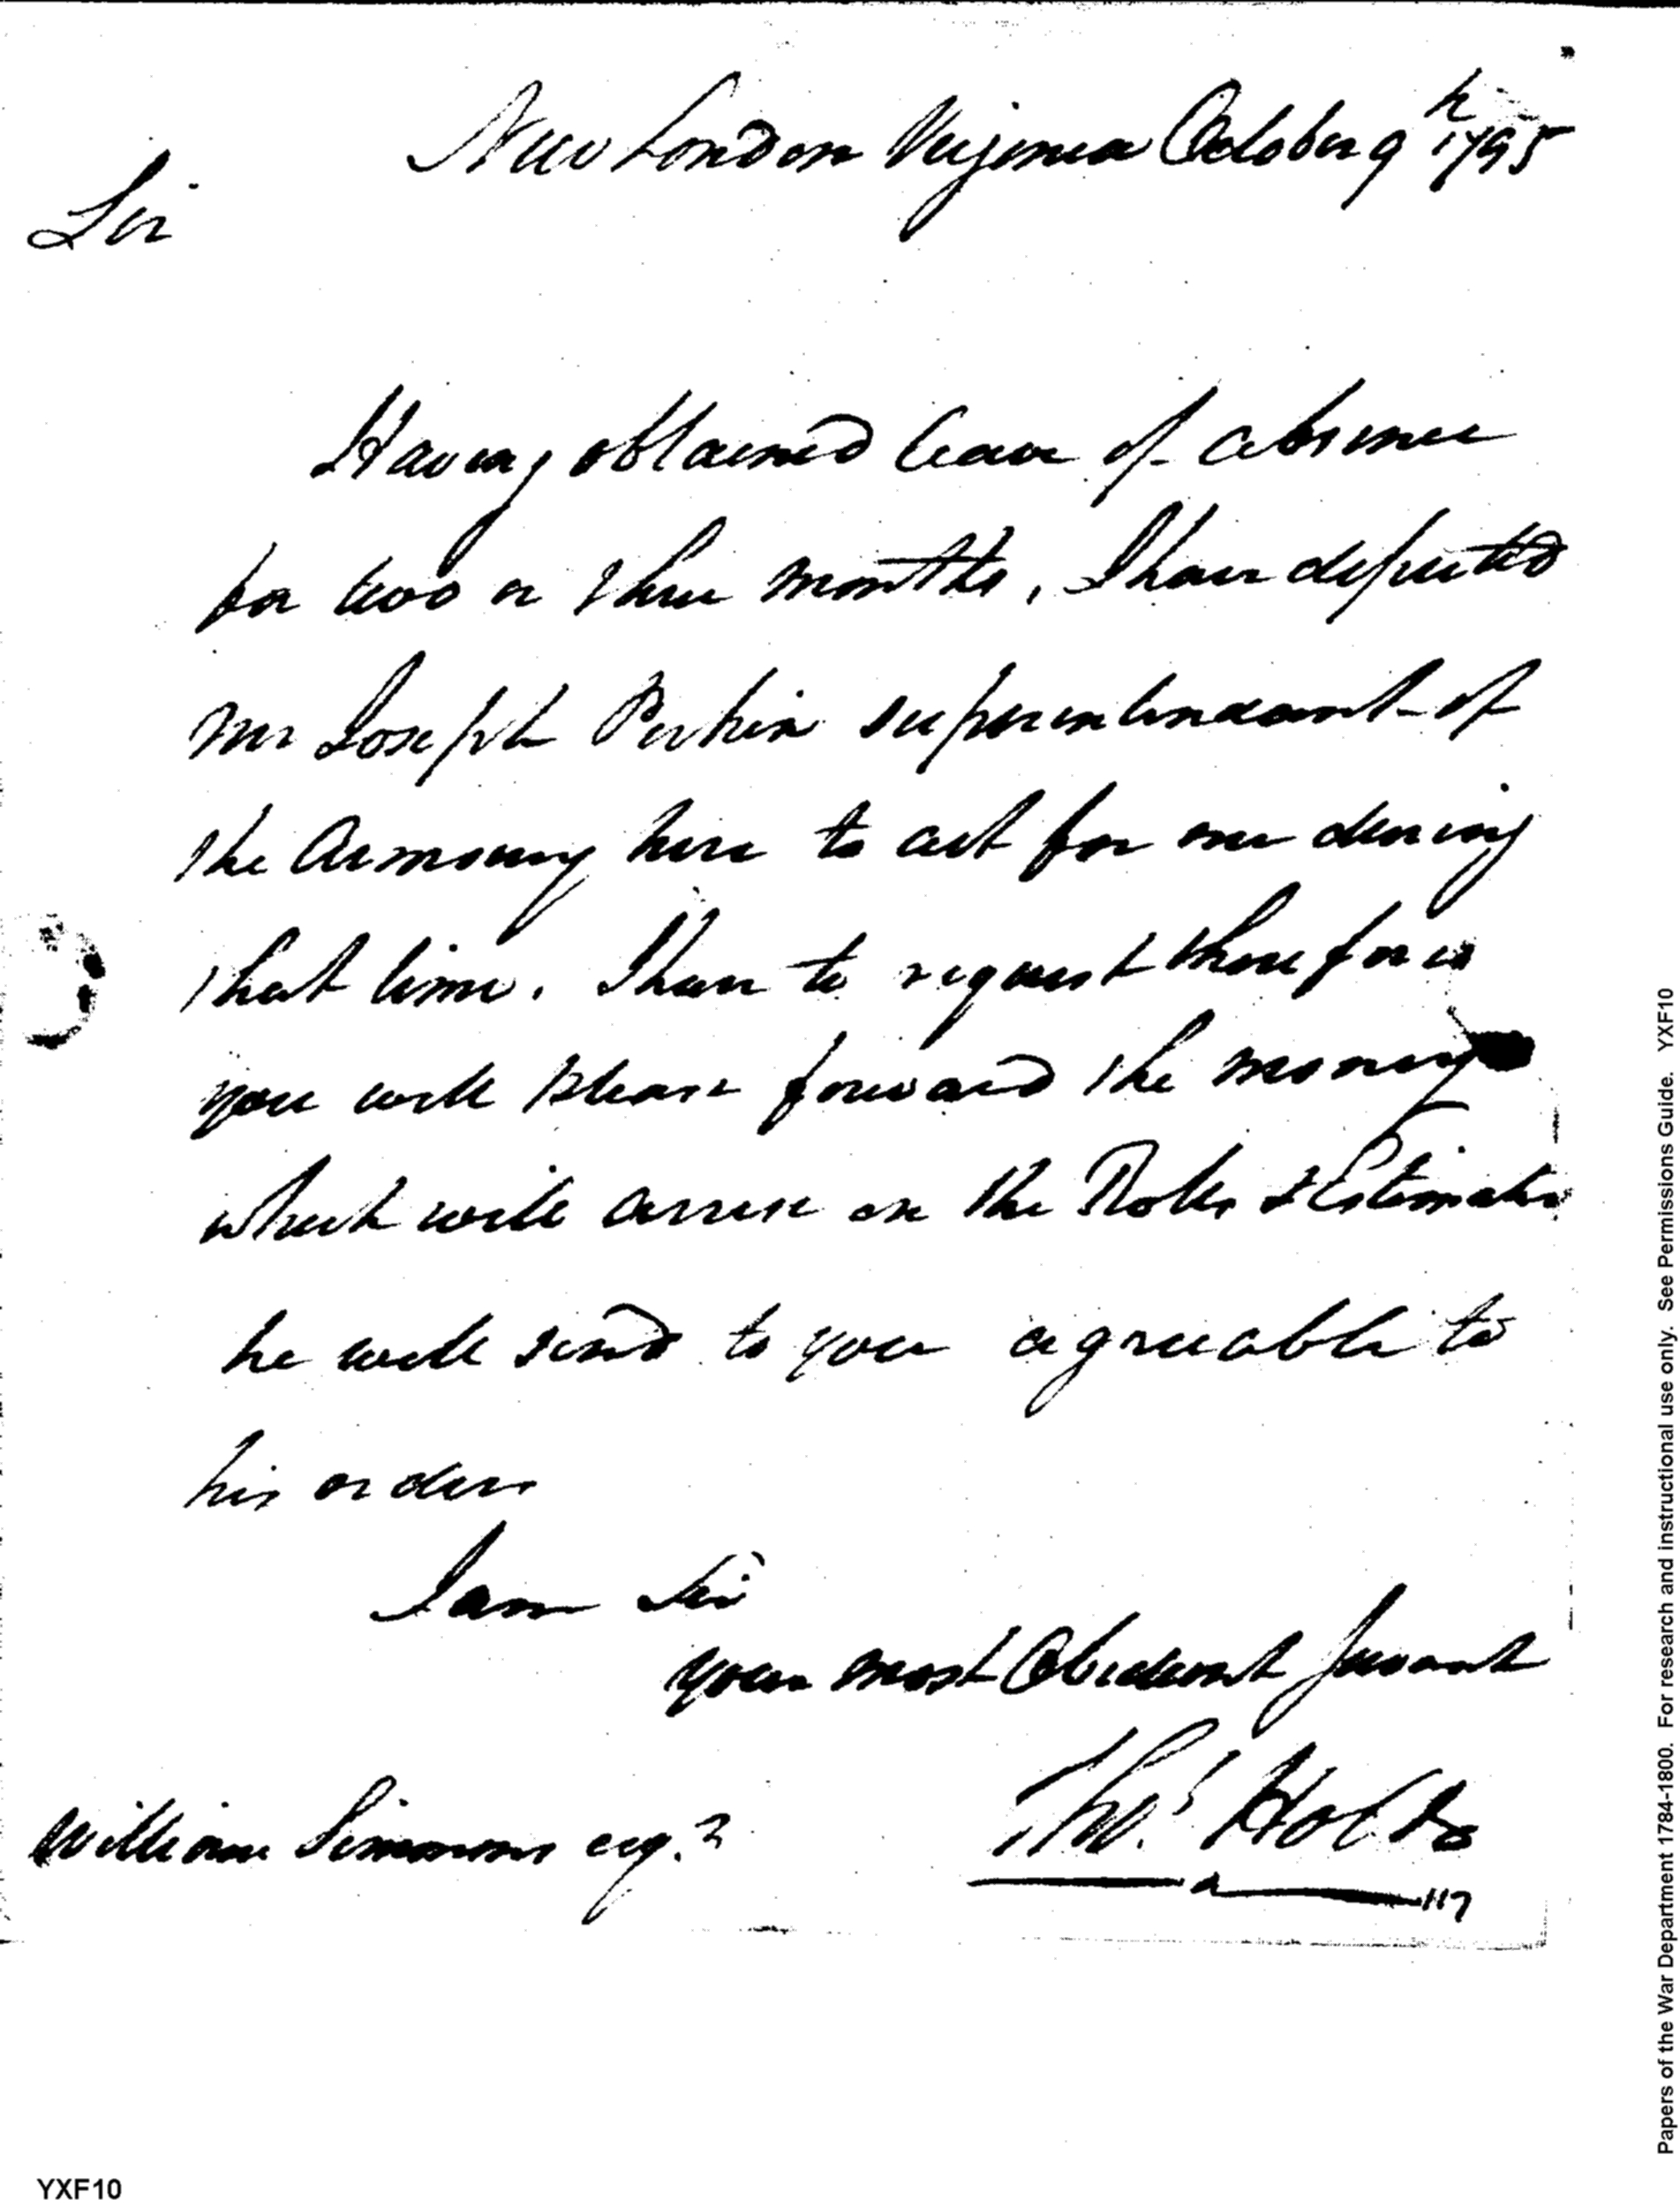 New London Virginia October 9th 1795
Sir
Having obtained leave of absence
for two or three months, I have deputed
Mr Joseph Perkin superintendant of
the Armoury here to act for me during
that time. I have to request therefore
you will please forward the money
which will arrise on the Roles & Estimates
he will send to you agreeable to
his order
I am Sir
your most Obedient Servant
Thos. Holt
William Simmons esqr.
117
Papers of the War Department 1784-1800. For research and instructional use only. See Permissions Guide. YXF10
YXF10